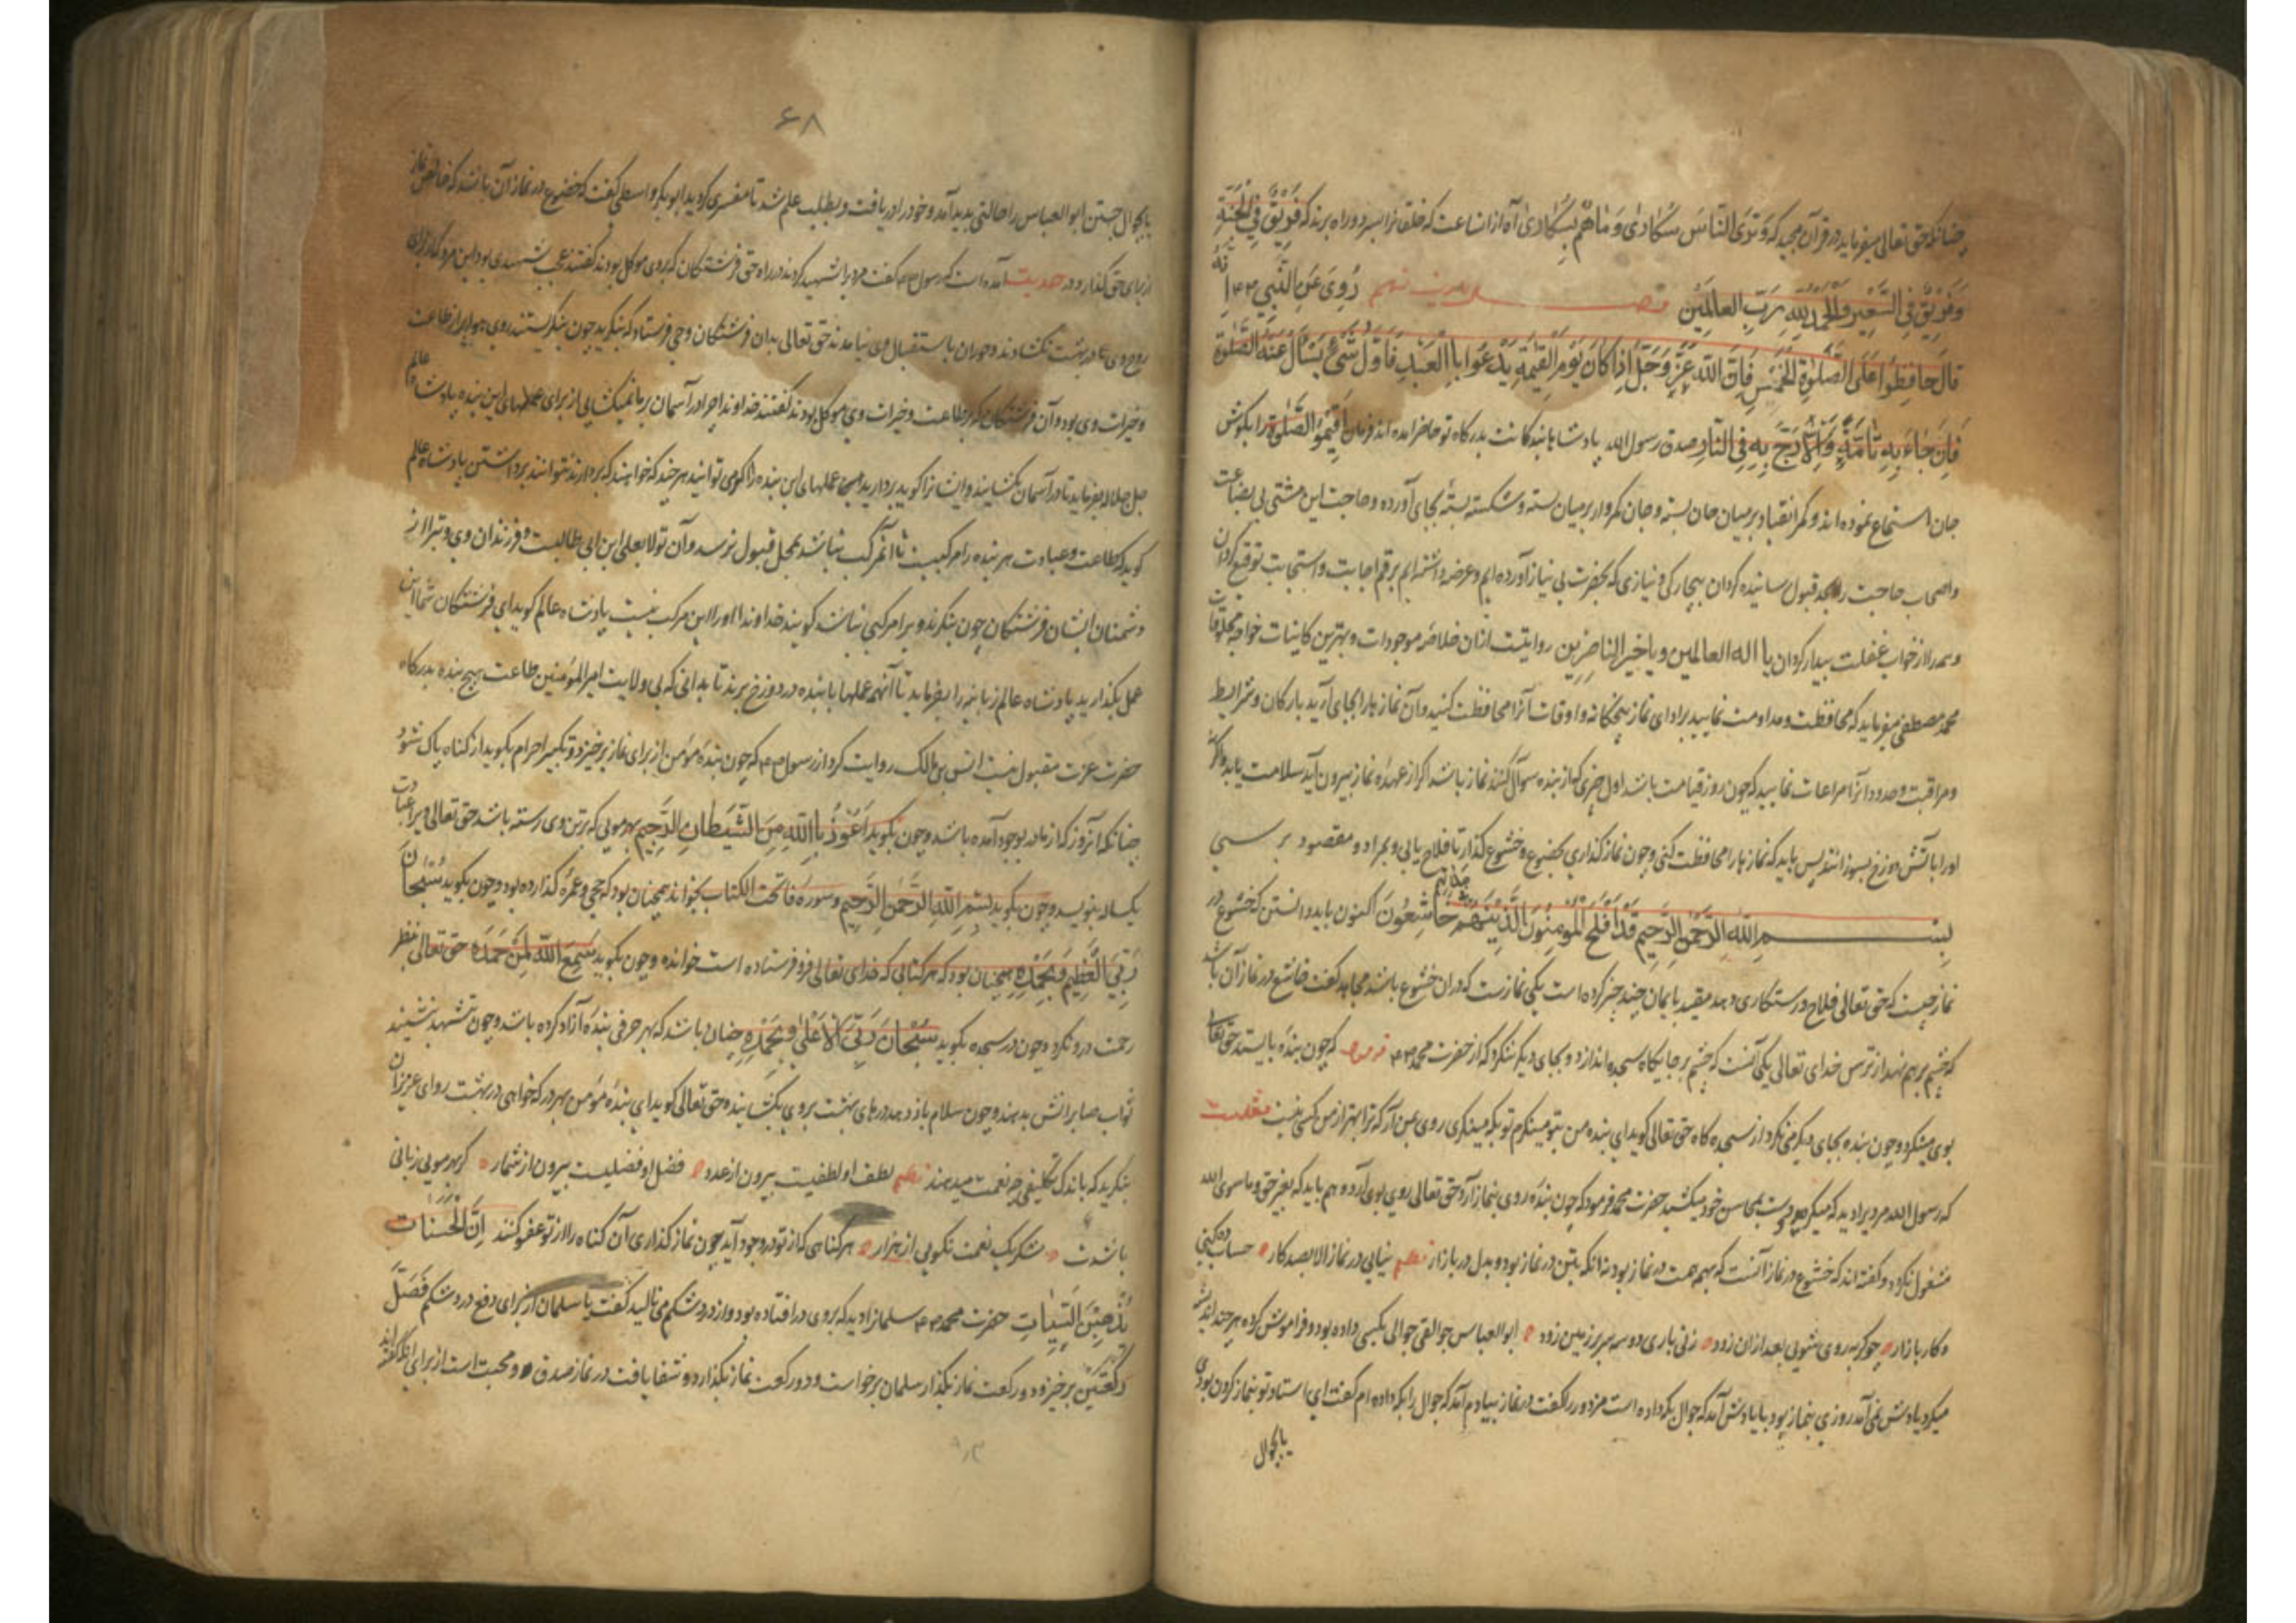 چنانکه حق تعالی میفرماید در قرآن مجید که وَتَرَی النَّاسَ سُکَارَی وَمَا هُمْ بِسُکَارَی آه از ان ساعت که خلقانرا بسر دو راه برند که فَرِیْقٌ فِی الْجَنَّةِ
وَفَرِیْقٌ فِی السَّعِیْرِ وَالْحَمْدُ لِلّٰهِ رَبِّ الْعَالَمِیْنَ رُوِیَ عَنِ النَّبِیِّ اَنَّهُ
قَالَ حَافِظُوا عَلَی الصَّلٰوةِ الْخَمْسِ فَاِنَّ اللّٰهَ عَزَّ وَجَلَّ اِذَا کَانَ یَوْمَ الْقِیٰمَةِ یَدْعُوا بِاالْعَبْدِ فَاَوَّلُ شَیْءٍ یَسْاَلُ عَنْهُ الصَّلٰوةُ
فَاِنْ جَاءَ بِهِ تَامَّةً وَاِلَّا زُجَّ بِهِ فِی النَّارِ صدق رسول الله پادشاها بندکانت بدرکاه تو حاضر امده اند فرمان اَقِیْمُوا الصَّلٰوةَ را بکوش
جان استماع نموده اند و کمر انقیاد بر میان جان بسته و شکسته بسته بجای آورده و حاجت این مشتی بی بضاعت
واصحاب حاجت را بحد قبول رسانیده کردان بیچارکی و نیازی که بحضرت بی نیاز آورده ایم و عرضه داشته ایم برقم اجابت و استجابت توقیع کردان
وهمه را از خواب غفلت بیدار کردان یا اله العالمین ویا خیر الناصرین روایتست از ان خلاصه موجودات و بهترین کاینات خواجه مخلوقات
محمد مصطفی میفرماید که محافظت و مداومت نمایید بر ادای نماز پنجکانه و اوقات آنرا محافظت کنید و آن نماز ها را بجای آرید بارکان و شرایط
ومراقبت و حدود آنرا مراعات نمایید که چون روز قیامت باشد اول چیزی که از بنده سوال کنند نماز باشد اکر از عهدهٔ نماز بیرون آید سلامت یابد و اکرنه
اورا باتش دوزخ بسوزانند پس باید که نماز ها را محافظت کنی و چون نماز کذاری بخضوع و خشوع کذار تا فلاح یابی و بمراد و مقصود برسی
بِسْمِ اللّٰهِ الرَّحْمٰنِ الرَّحِیْمِ قَدْ اَفْلَحَ الْمُؤْمِنُوْنَ الَّذِیْنَ هُمْ فِی صَلَاتِهِمْ خَاشِعُوْنَ اکنون باید دانستن که خشوع در
نماز چیست که حق تعالی فلاح و رستکاری دهد مقید بایمان چند چیز کرده است یکی نماز است که در ان خشوع باشد مجاهد کفت خاشع در نماز آن باشد
که چشم بر هم نهد از ترس خدای تعالی یکی آنست که چشم بر جایکاه سجده اندازد و بجای دیکر ننکرد که از حضرت محمد که چون بندهٔ بایستد حق تعالی
بوی مینکرد و چون بنده بجای دیکر می نکرد از سجده کاه حق تعالی کوید ای بنده من بتو مینکرم تو بکه مینکری روی بمن آر که ترا بهتر از من کسی نیست
که رسول الله مردیرا دید که دست بمحاسن خود میکشید حضرت محمد فرمود که چون بندهٔ روی بنماز آرد حق تعالی روی بوی آرد و هم باید که بغیر حق و ماسوی الله
مشغول نکردد و کفته اند که خشوع در نماز آنست که بهمه همت در نماز بود نه انکه بتن در نماز بود و بدل در بازار نظم نیایی در نماز الا بصد کار حساب ده کنی
و کار بازار چو کربه روی شویی بعد از ان زود زنی باری دو سه سر بر زمین زود ابوالعباس جوالقی جوالی بکسی داده بود و فراموش کرده هر چند اندیشه
میکرد یادش نمی آمد روزی بنماز بود با یادش آمد که جوال بکه داده است مزدور را کفت در نماز بیادم آمد که جوال را بکه داده ام کفت ای استاد تو بنماز کردن بودی
یا بجوال
۶۸
یا بجوال جستن ابوالعباس را حالتی پدید آمد و خود را دریافت و بطلب علم شد تا مفسری کردید ابوبکر واسطی کفت که خضوع در نماز آن باشد که خالص نماز
از برای حق کذارد و در حدیث آمده است که رسول کفت مردیرا شهید کردند در راه حق فرشتکان که بر وی موکل بودند کفتند عجب شهیدی بود این مرد که از برای
روح وی تا در بهشت نکشادند و حوران باستقبال وی نیامدند حق تعالی بدان فرشتکان وحی فرستاد که بنکرید چون بنکریستند روی هوا پر از طاعت
وخیرات وی بود و آن فرشتکان که بر طاعت و خیرات وی موکل بودند کفتند خداوندا چرا در آسمان بر ما نمیکشایی از برای عملهای این بنده پادشاه عالم
جل جلاله بفرماید تا در آسمان بکشایند و ایشانرا کوید بردارید همین عملهای این بنده را اکر می توانید هر چند که خواهند که بردارند نتوانند برداشتن پادشاه عالم
کوید که طاعت و عبادت هر بنده را مرکبیست تا آن مرکب نباشد بمحل قبول نرسد و آن تولا بعلی ابن ابی طالبست و فرزندان وی و تبرا از
دشمنان ایشان فرشتکان چون بنکرند ویرا مرکبی نباشد کویند خداوندا اورا این مرکب نیست پادشاه عالم کوید ای فرشتکان شما این
عمل بکذارید پادشاه عالم زبانیه را بفرماید تا آنهمه عملها با بنده در دوزخ برند تا بدانی که بی ولایت امیر المؤمنین طاعت هیچ بنده بدرکاه
حضرت عزت مقبول نیست انس بن مالک روایت کرد از رسول که چون بندهٔ مؤمن از برای نماز برخیزد و تکبیر احرام بکوید از کناه پاک شود
چنانکه آنروز که از مادر بوجود آمده باشد و چون بکوید اَعُوْذُ بِاللّٰهِ مِنَ الشَّیْطَانِ الرَّجِیْمِ بهر مویی که بر تن وی رسته باشد حق تعالی ویرا عبادت
یکساله بنویسد و چون بکوید بِسْمِ اللّٰهِ الرَّحْمٰنِ الرَّحِیْمِ و سورهٔ فاتحت الکتاب بخواند همچنان بود که حجی و عمرهٔ کذارده بود و چون بکوید سُبْحَانَ
رَبِّیَ الْعَظِیْمِ وَبِحَمْدِهِ همچنان بود که هر کتابی که خدای تعالی فرو فرستاده است خوانده و چون بکوید سَمِعَ اللّٰهُ لِمَنْ حَمِدَهُ حق تعالی بنظر
رحمت درو نکرد و چون در سجده بکوید سُبْحَانَ رَبِّیَ الْاَعْلٰی وَبِحَمْدِهِ چنان باشد که بهر حرفی بندهٔ آزاد کرده باشد و چون بتشهد بنشیند
ثواب صابرانش بدهند و چون سلام باز دهد درهای بهشت بروی بکشایند و حق تعالی کوید ای بندهٔ مؤمن بهر در که خواهی در بهشت رو ای عزیزان
بنکرید که باندک تکلیفی چه نعمت میدهند نظم لطف او لطفیست بیرون از عدد فضل او فضلیست بیرون از شمار کر بهر مویی زبانی
باشدت شکر یک نعمت نکویی از هزار هر کناهی که از تو در وجود آید چون نماز کذاری آن کناه را از تو عفو کنند اِنَّ الْحَسَنَاتِ
یُذْهِبْنَ السَّیِّئَاتِ حضرت محمد سلمانرا دید که بروی در افتاده بود و از درد شکم می نالید کفت یا سلمان از برای دفع درد شکم فَصَلِّ
رَکْعَتَیْنِ برخیز و دو رکعت نماز بکذار سلمان برخواست و دو رکعت نماز بکذارد و شفا یافت در نماز صدق و محبت است از برای انکه کفته اند